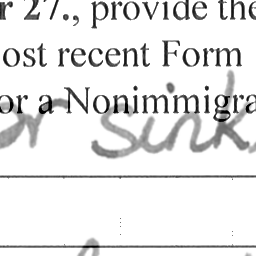 r 27., provide the
ost recent Form
or a Nonimmigra
or sink